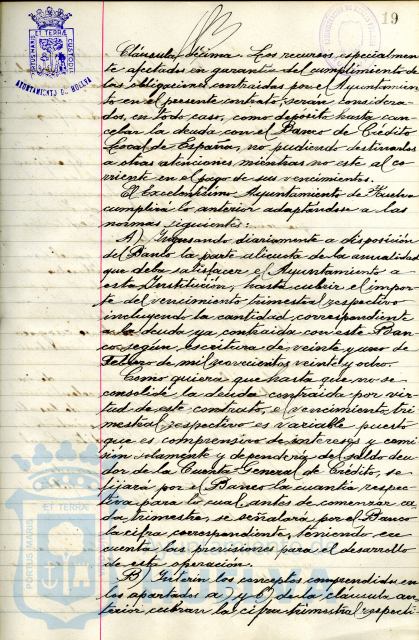 19
PORTUS MARIS ET TERRÆ CUSTODIA
AYUNTAMIENTO DE HUELVA
Cláusula décima - Los recursos especialmen-
te afectados en garantía del cumplimiento de
las obligaciones contraidas por el Ayuntamien-
to en el presente contrato, serán considera-
dos, en todo caso, como depósito hasta can-
celar la deuda con el Banco de Crédito
Local de España, no pudiendo destinarlos
a otras atenciones mientras no esté al co-
rriente en el pago de sus vencimientos.
El Excelentísimo Ayuntamiento de Huelva
cumplirá lo anterior adaptándose a las
normas siguientes:
A) Ingresando diariamente a disposición
del Banco la parte alicuota de la anualidad
que deba satisfacer el Ayuntamiento a
esta Institución, hasta cubrir el impor-
te del vencimiento trimestral respectivo
incluyendo la cantidad correspondiente
a la deuda ya contraida con este Ban-
co según escritura de veinte y uno de
Febrero de mil novecientos veinte y ocho.
Como quiera que hasta que no se
consolide la deuda contraida por vir-
tud de este contrato, el vencimiento tri-
mestral respectivo es variable puesto
que es comprensivo de intereses y comi-
sión solamente y dependerá del saldo deu-
dor de la Cuenta General de Crédito, se
fijará por el Banco la cuantía respec-
tiva para lo cual antes de comenzar ca-
da trimestre, se señalará por el Banco
la cifra correspondiente, teniendo en
cuenta las previsiones para el desarrollo
de esta operación.
B) Interin los conceptos comprendidos en
los apartados a) y b) de la cláusula an-
terior cubran la cifra trimestral respecti-
PORTUS MARIS ET TERRÆ